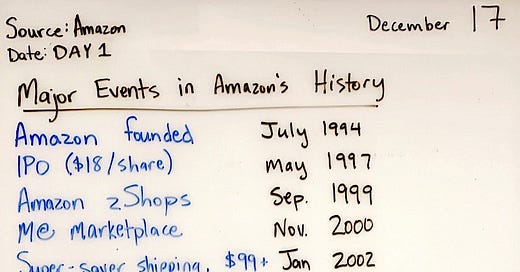 Source: Amazon
December 17
Date: DAY 1
Major Events in Amazon's History
Amazon founded July 1994
IPO ($18/share) May 1997
Amazon zShops Sep. 1999
M@ Marketplace Nov. 2000
Super-saver shipping, $99+ Jan 2002